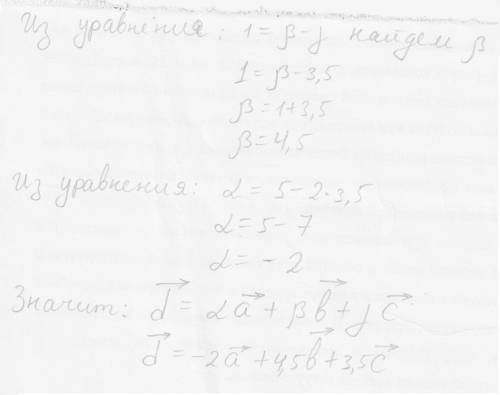 Из уравнения: 1 = β - j найдем β
1 = β - 3,5
β = 1 + 3,5
β = 4,5
Из уравнения: α = 5 - 2·3,5
α = 5 - 7
α = - 2
Значит: d⃗ = αa⃗ + βb⃗ + jc⃗
d⃗ = -2a⃗ + 4,5b⃗ + 3,5c⃗